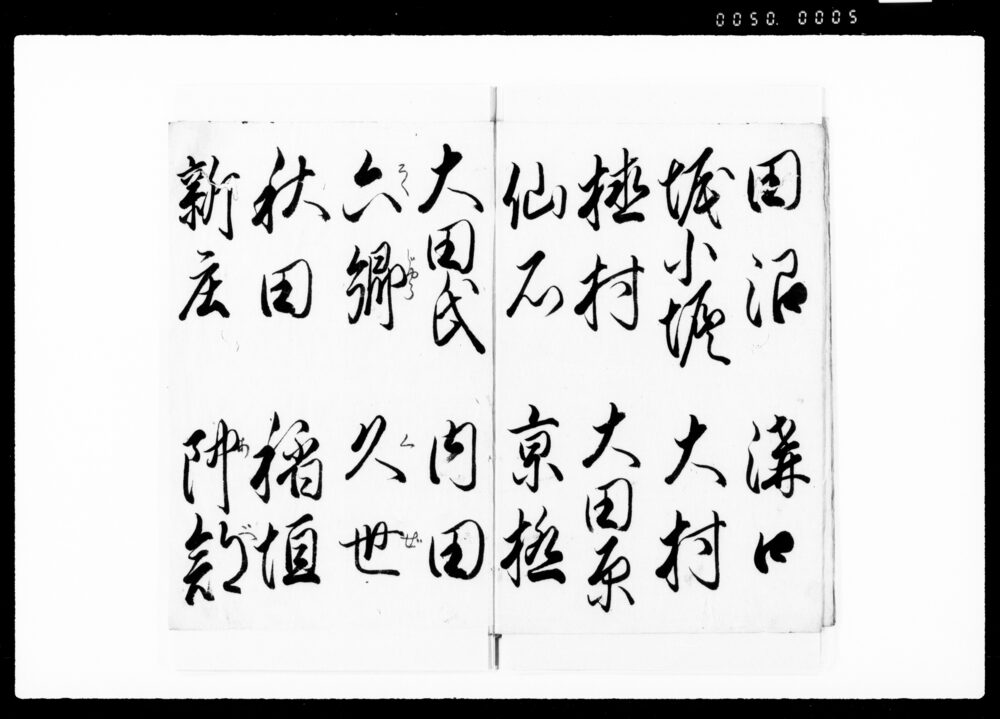 0050. 0005
田沼 溝口
大村
植村 大田原
仙石 京極
大田氏 内田
六郷 久世
くぜ
秋田 稲垣
新庄 阿部
あべ